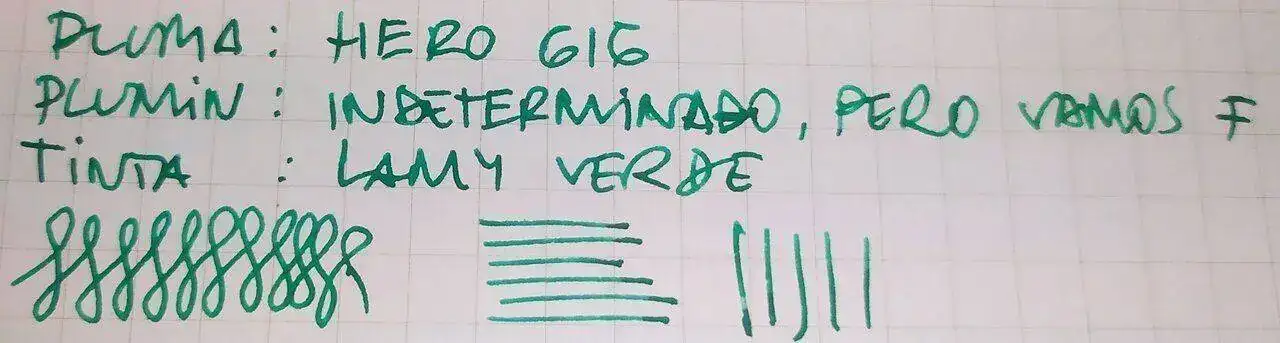 PLUMA: HERO 616
PLUMIN: INDETERMINADO, PERO VAMOS F
TINTA : LAMY VERDE